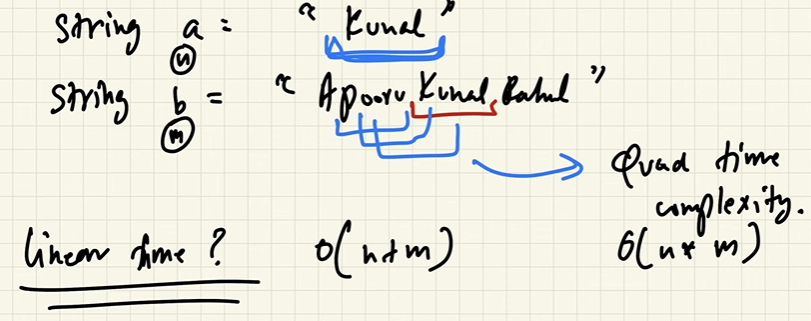 string a = "Kunal"
n
string b = "Apoorv Kunal Rahul"
m
Quad time
complexity.
linear time? O(n+m) O(n* m)